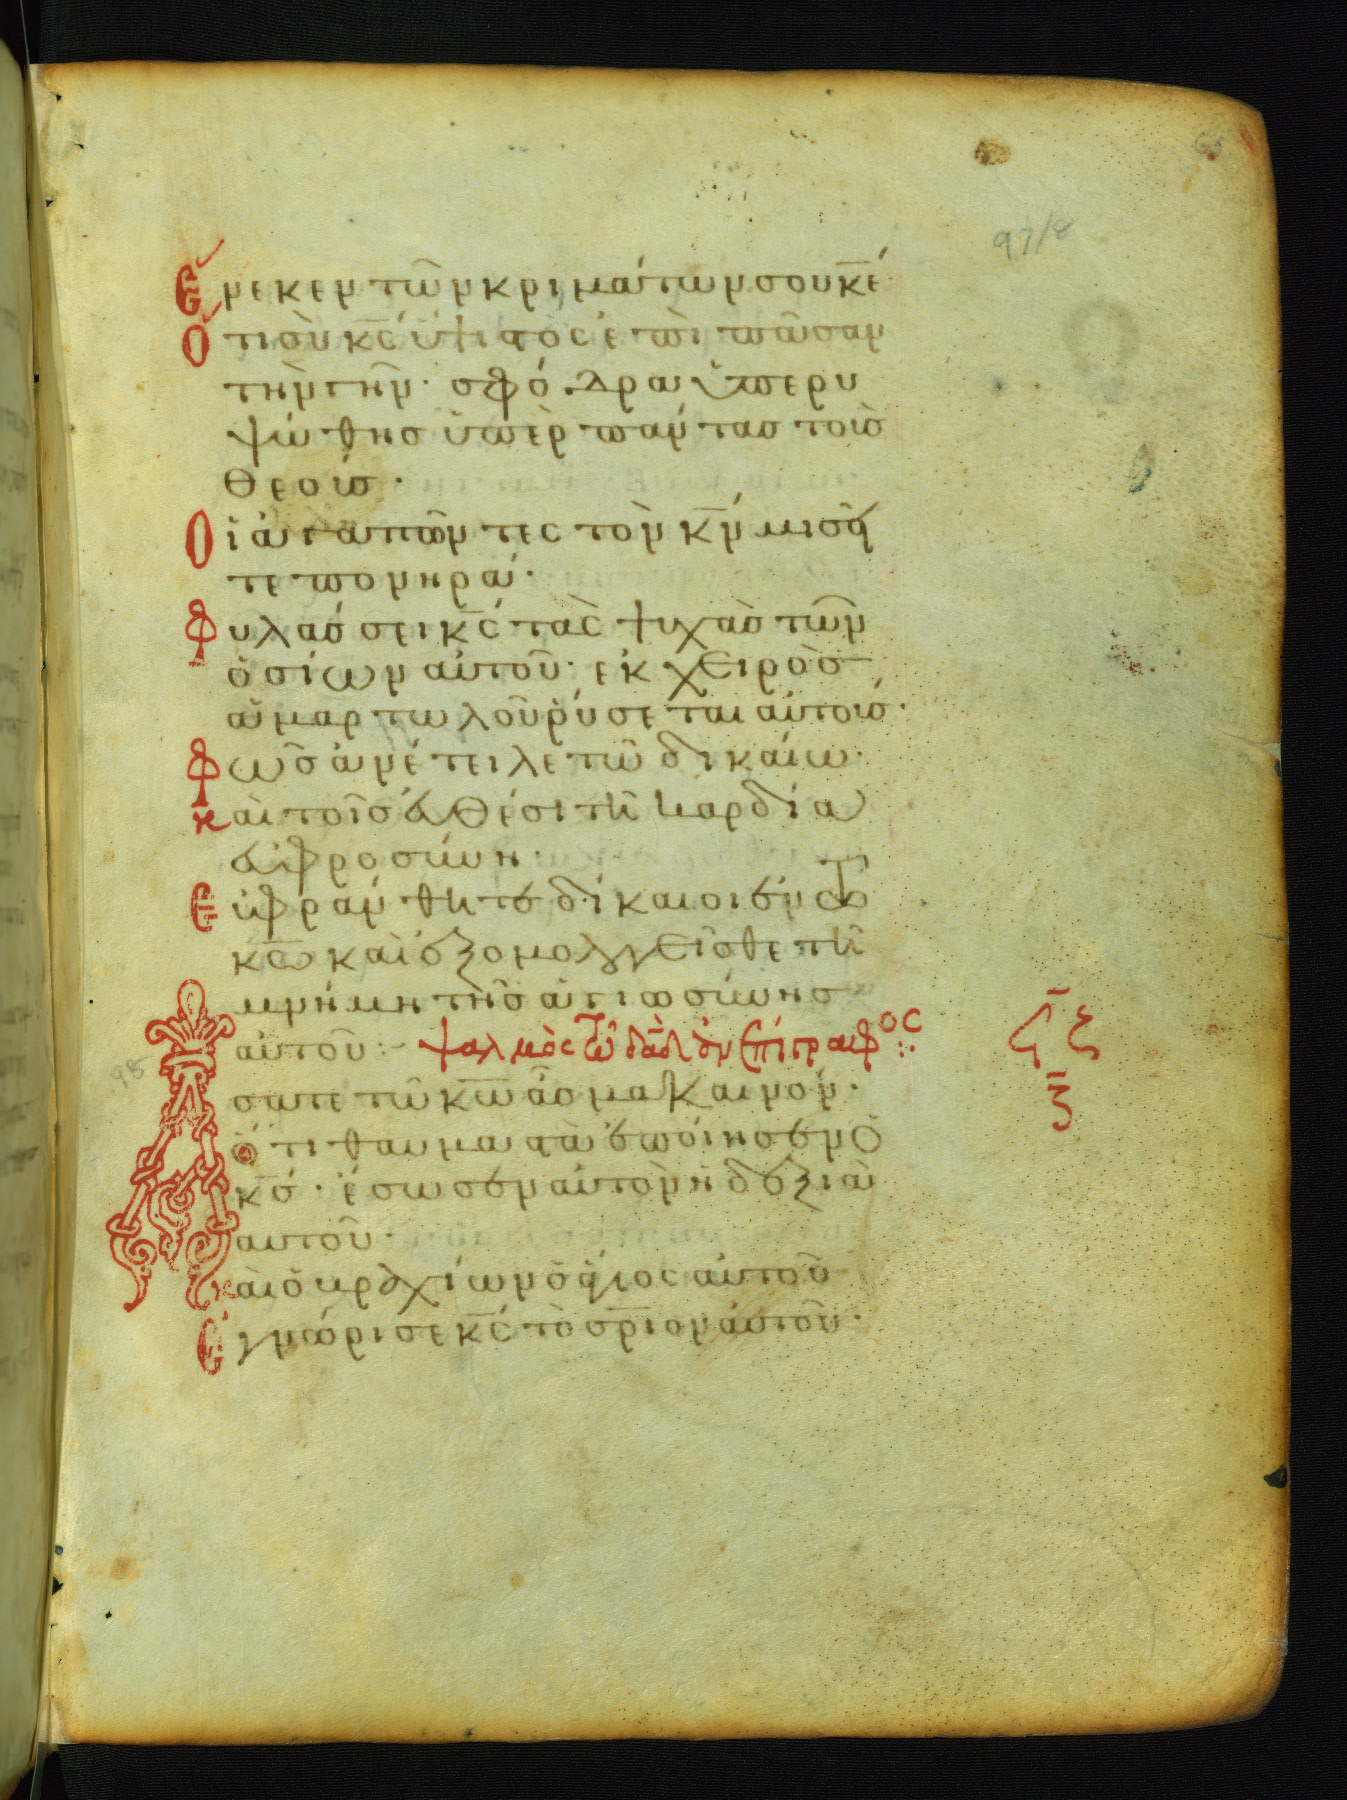 65
97/8
Ἕνεκεν τῶν κριμάτων σου κ̅έ
Ὅτι σὺ κ̅ς́ ὕψιστος ἐπὶ πᾶσαν
τὴν γῆν· σφόδρα ὑπερυ
ψώθης ὑπὲρ πάντας τοὺς
θεούς·
Οἱ ἀγαπῶντες τὸν κ̅ν́ μισεῖ
τε πονηρά·
Φυλάσσει κ̅ς́ τὰς ψυχὰς τῶν
ὁσίων αὐτοῦ· ἐκ χειρὸς
ἁμαρτωλοῦ ῥύσεται αὐτούς·
Φῶς ἀνέτειλε τῶ δικαίω·
Καὶ τοῖς εὐθέσι τῆ καρδία
εὐφροσύνη·
Εὐφράνθητε δίκαιοι ἐν τῶ
κ̅ω καὶ ἐξομολογεῖσθε τῆ
μνήμη τῆς ἁγιωσύνης
αὐτοῦ:– ψαλμὸς τῶ δα̅δ̀ ἀνεπίγραφος :·
98
ζ̅ ζ
ξ̅
Ἄσατε τῶ κ̅ω ἆσμα καινόν·
Ὅτι θαυμαστὰ ἐποίησεν ὁ
κ̅ς́· ἔσωσεν αὐτὸν ἡ δεξιὰ
αὐτοῦ·
Καὶ ὁ βραχίων ὁ ἅγιος αὐτοῦ
Ἐγνώρισε κ̅ς́ τὸ σ̅ρ̅ιον αὐτοῦ·